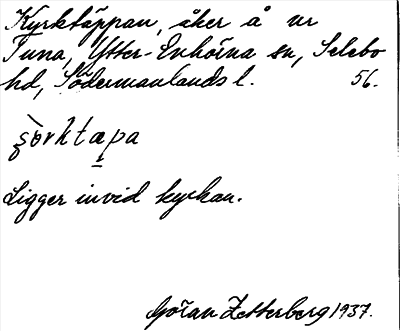 Kyrktäppan, åker å nr
Tuna, Ytter-Enhörna sn, Selebo
hd, Södermanlands l. 56.
Ligger invid kyrkan.
Göran Zetterberg 1937.